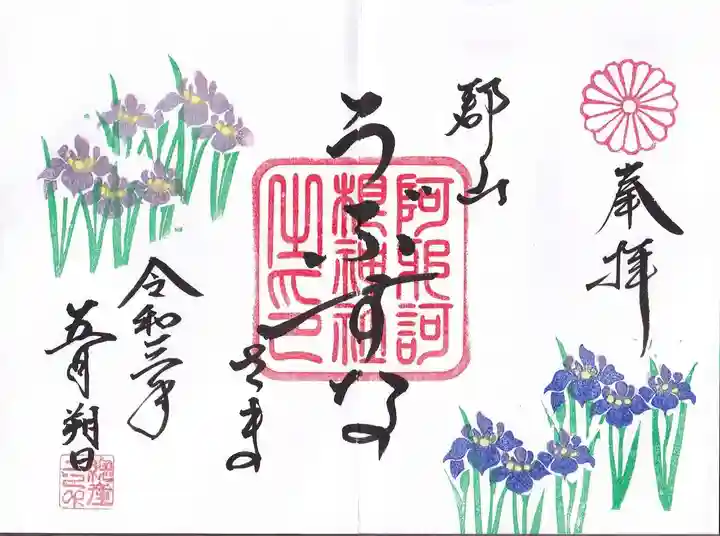 奉拝
郡山
うぶすな
さま
阿邪訶
根神社
之印
令和三年
五月朔日